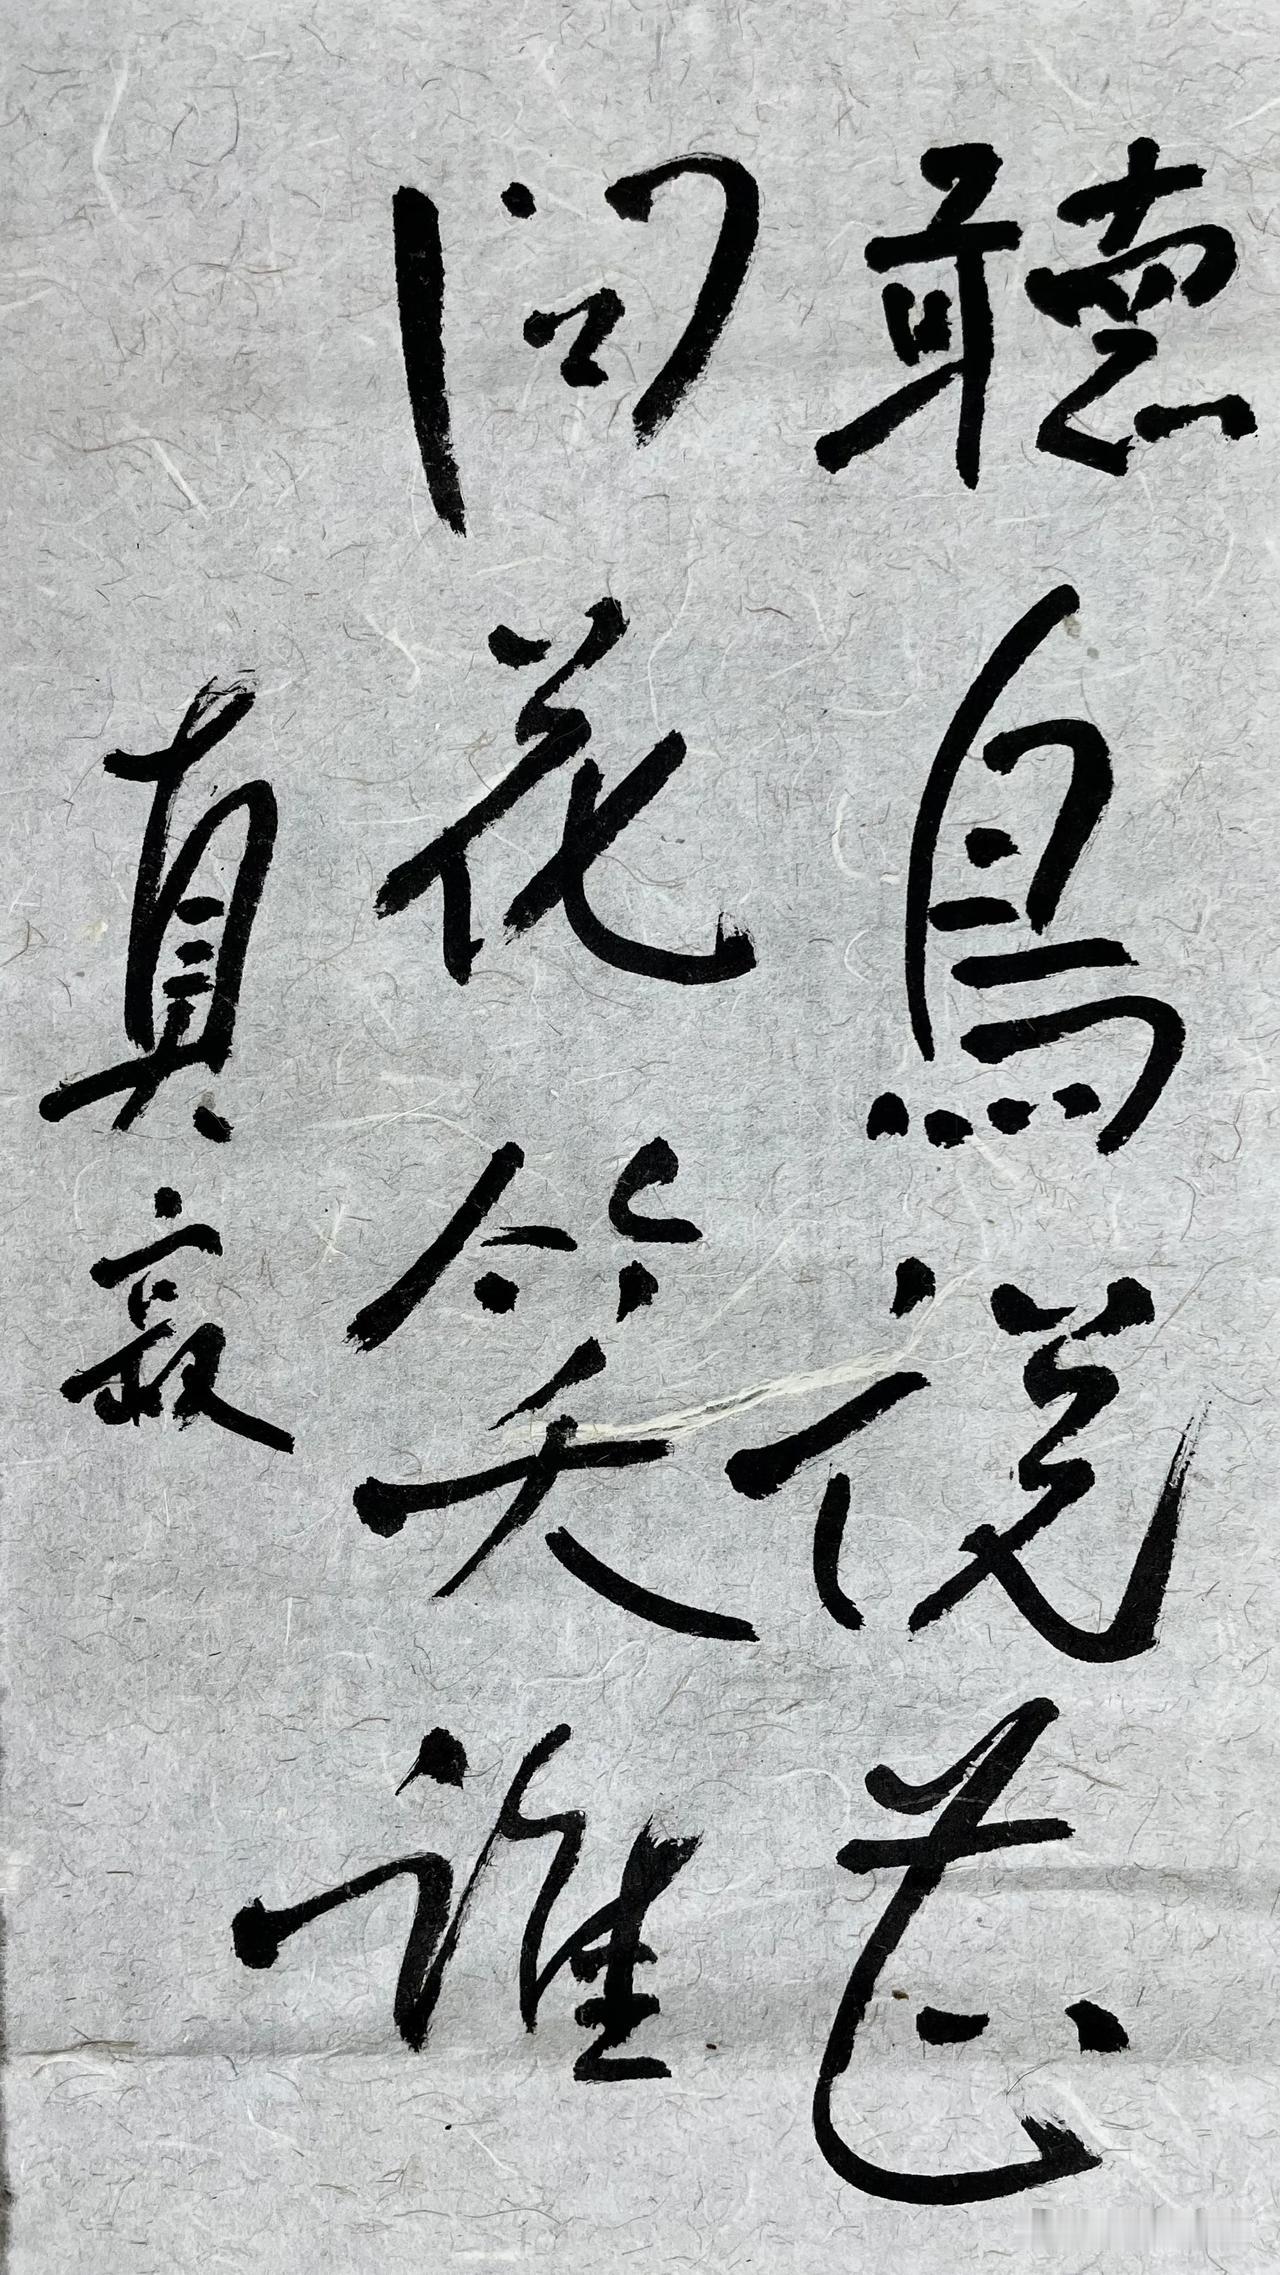 聽鳥說甚
問花笑誰
真寂